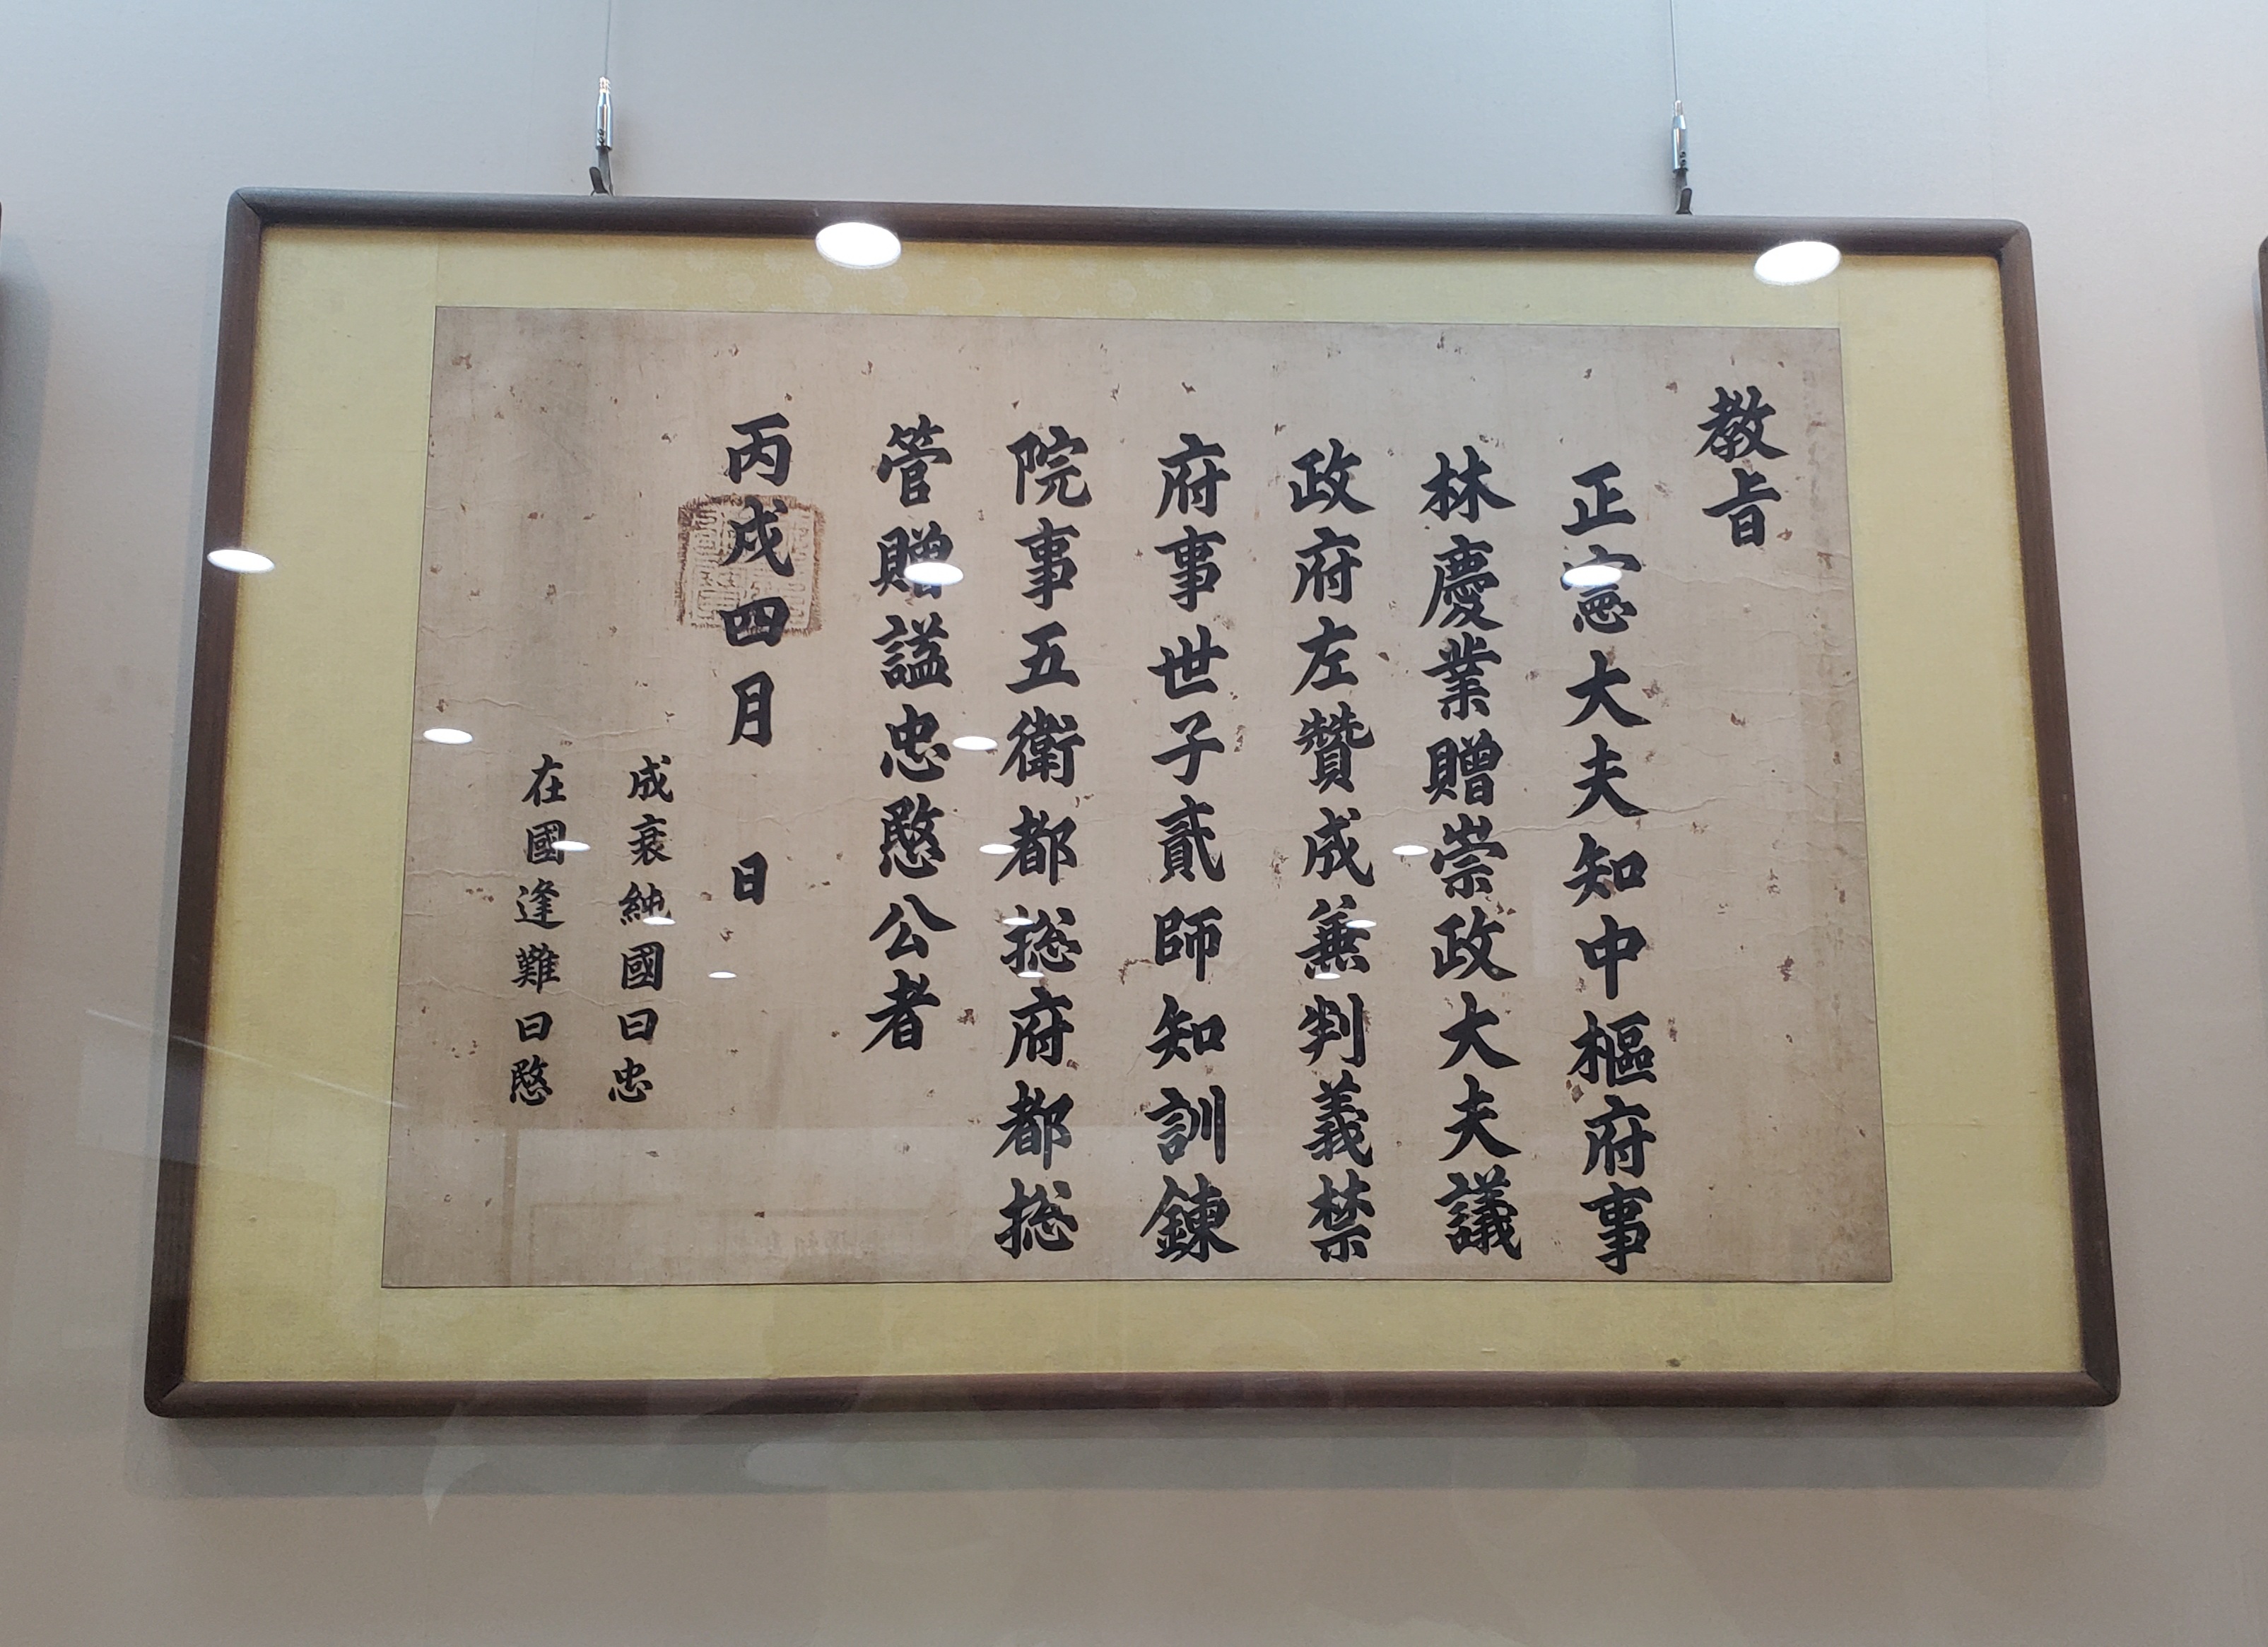 教旨
正憲大夫知中樞府事
林慶業贈崇政大夫議
政府左贊成兼判義禁
府事世子貳師知訓鍊
院事五衛都摠府都摠
管贈謚忠愍公者
丙戌四月 日
成衰純國曰忠
在國逢難曰愍